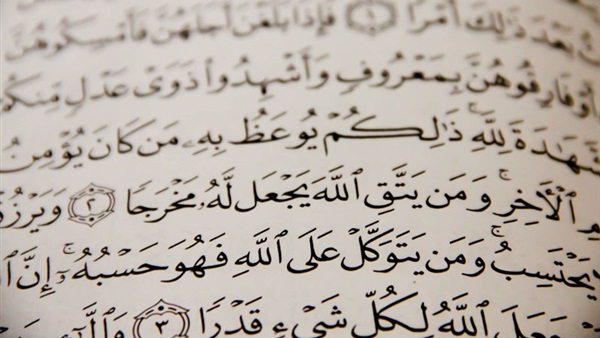 بَعْدَ ذَٰلِكَ أَمْرًا ١ فَإِذَا بَلَغْنَ أَجَلَهُنَّ فَأَمْسِكُوهُنَّ
أَوْ فَارِقُوهُنَّ بِمَعْرُوفٍ وَأَشْهِدُوا۟ ذَوَىْ عَدْلٍ مِّنكُمْ
ٱلشَّهَٰدَةَ لِلَّهِ ۚ ذَٰلِكُمْ يُوعَظُ بِهِۦ مَن كَانَ يُؤْمِنُ
ٱلْأَخِرِ ۚ وَمَن يَتَّقِ ٱللَّهَ يَجْعَل لَّهُۥ مَخْرَجًا ٢ وَيَرْزُقْ
يَحْتَسِبُ ۚ وَمَن يَتَوَكَّلْ عَلَى ٱللَّهِ فَهُوَ حَسْبُهُۥٓ ۚ إِنَّ
جَعَلَ ٱللَّهُ لِكُلِّ شَىْءٍ قَدْرًا ٣